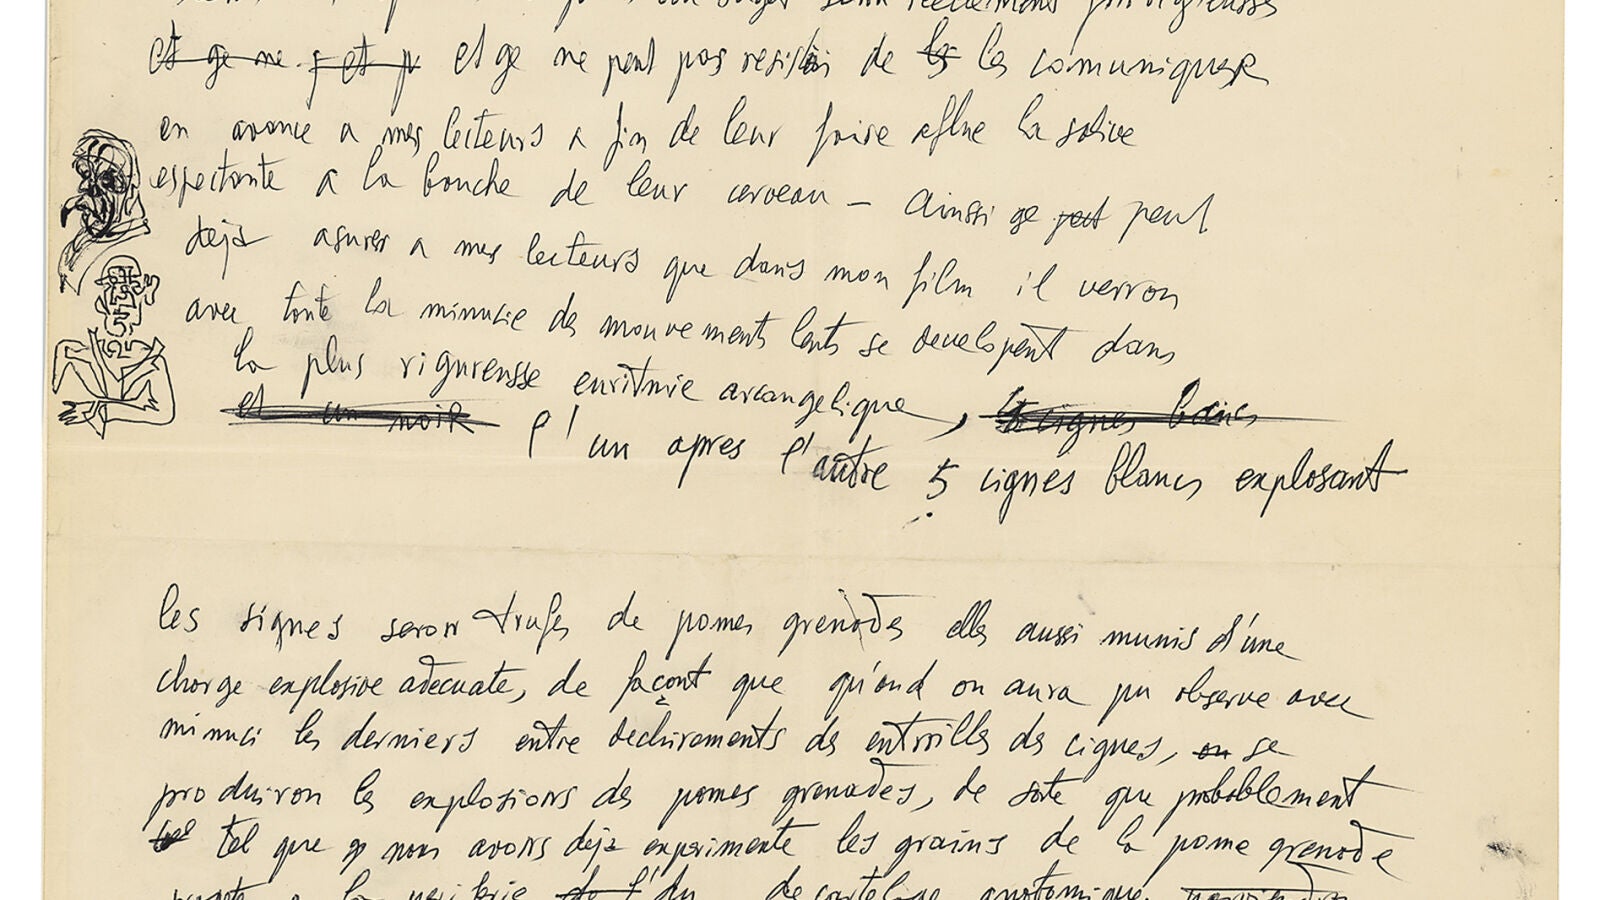 seron reellemens prodigieuses
et ge ne et p et ge ne peut pas resister de les les comuniquer
en avance a mes lecteurs a fin de leur faire aflue la salive
espectante a la bouche de leur cerveau – ainsi ge peut peut
deja asurer a mes lecteurs que dans mon film il verron
avec toute la minucie des mouvements lents se developent dans
la plus rigureusse euritmie arcangelique, 5 cignes blancs
et un noir l'un apres l'autre 5 cignes blancs explosant
les signes seron trufes de pomes grenades elles aussi munis d'une
charge explosive adecuate, de façont que qu'and on aura pu observe avec
minuci les derniers entre dechirements des entrailles des cignes, on se
produiron les explosions des pomes grenades, de sorte que probablement
tel que nous avons deja experimente les grains de la pome grenade
a la de l' du de anatomique